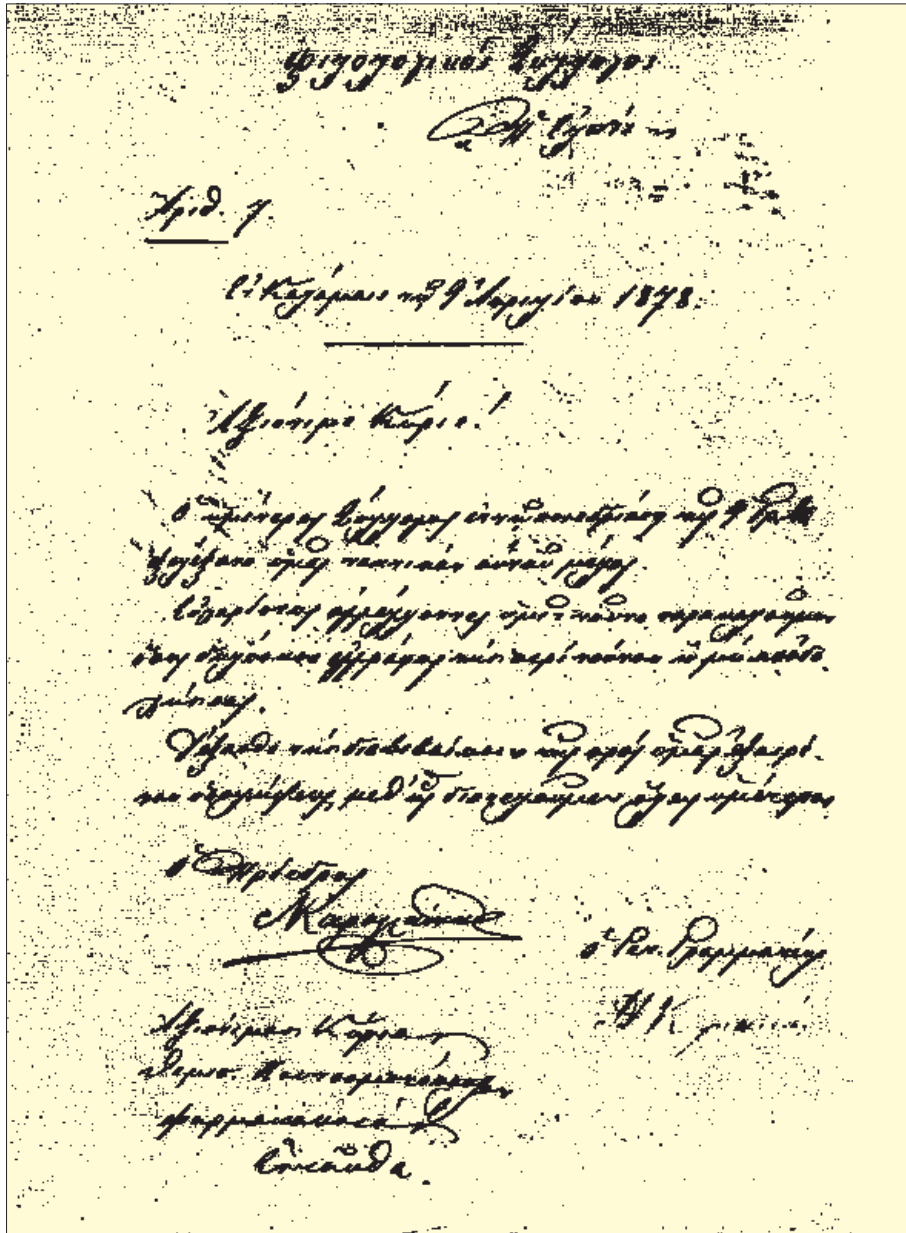 Φιλολογικὸς Σύλλογος
"Ἡ Ἐλπὶς"
Ἀριθ. 7.
Ἐν Καλάμαις τῇ 9 Ἀπριλίου 1878.
Ἀξιότιμε Κύριε!
Ὁ ἡμέτερος Σύλλογος ἐν τῇ συνεδριάσει τῆς 9
ἐξελέξατο ὑμᾶς τακτικὸν αὐτοῦ μέλος.
Εὐχαρίστως ἀγγέλλοντες ὑμῖν τοῦτο παρακαλοῦμεν
ὅπως δηλώσητε ἐγγράφως τὴν περὶ τούτου ἢ μὴ ἀποδο
χήν σας.
Δέξασθε τὴν διαβεβαίωσιν τῆς πρὸς ὑμᾶς ἐξαιρέ-
του ὑπολήψεως μεθ' ἧς διατελοῦμεν ὅλως ὑμέτεροι
Ὁ Πρόεδρος
ὁ Γεν. Γραμματεὺς
Ἀξιότιμον Κύριον
Θεμισ.
φαρμακοποιόν
Ἐνταῦθα.